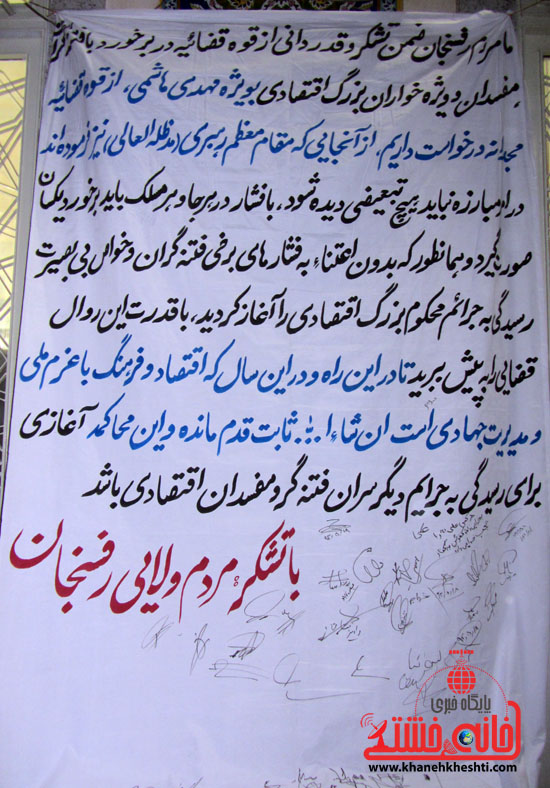 ما مردم رفسنجان ضمن تشکر و قدردانی از قوه قضائیه در برخورد با فتنه گران
، مفسدان و ویژه خواران بزرگ اقتصادی بویژه مهدی هاشمی، از قوه قضائیه
مجدانه درخواست داریم، از آنجایی که مقام معظم رهبری (مدظله العالی) نیز فرموده اند
در امر مبارزه نباید هیچ تبعیضی دیده شود، با فشار در هر جا و هر مسلک باید برخورد یکسان
صورت گیرد و همانطور که بدون اعتناء به فشارهای برخی فتنه گران و خواص بی بصیرت
رسیدگی به جرائم محکوم بزرگ اقتصادی را آغاز کردید، با قدرت این روال
قضایی را به پیش ببرید تا در این راه و در این سال که اقتصاد و فرهنگ با عزم ملی
و مدیریت جهادی است ان شاءا... ثابت قدم مانده و این محاکمه آغازی
برای رسیدگی به جرایم دیگر سران فتنه گر و مفسدان اقتصادی باشد
با تشکر مردم ولایی رفسنجان
پایگاه خبری
خانه خشتی
www.khanehkheshti.com